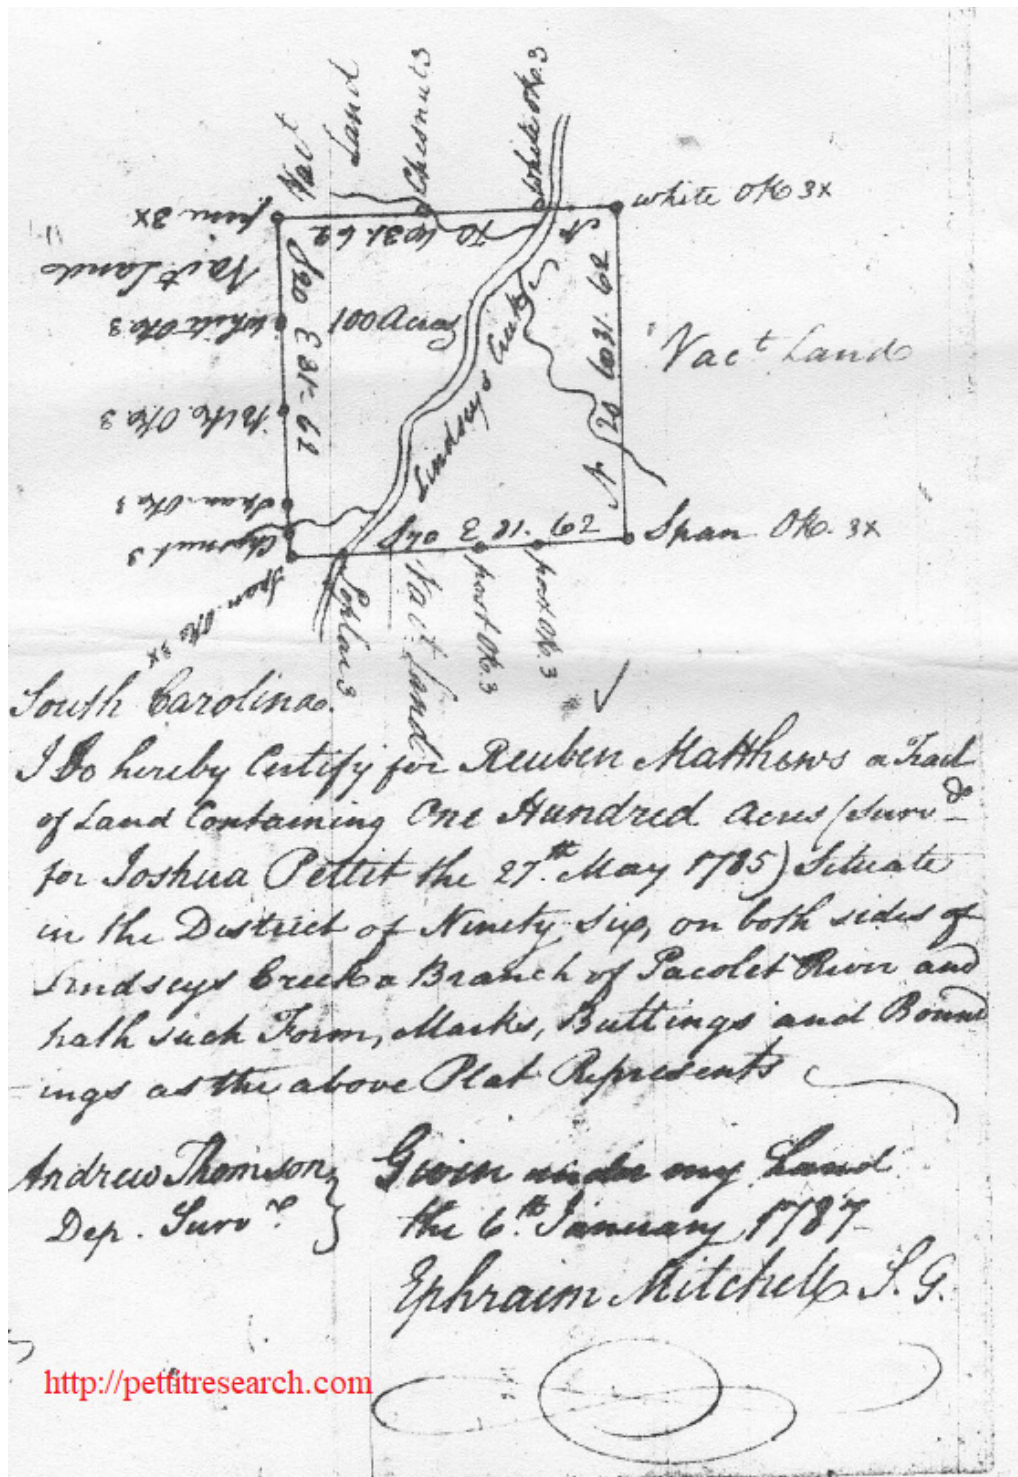 Vact
Land
Chesnut 3
White Ok. 3
pine 3X
white OK 3X
Vact Land
White Ok 3
100 Acres
Lindseys Creek
Vact Land
Span. Ok 3
Chesnut 3
S 70 E 31. 62
Span OK. 3X
Span. Ok 3X
Poplar 3
Vact. Land
post Ok. 3
post Ok. 3
South Carolina.
I Do hereby Certify for Reuben Matthews a Tract
of Land Containing One Hundred Acres (Survd
for Joshua Pettit the 27th. May 1785) Situate
in the District of Ninety Six, on both sides of
Lindseys Creek a Branch of Pacolet River and
hath such Form, Marks, Buttings and Bound
ings as the above Plat Represents
Andrew Thomson
Dep. Survr.
Given under my Hand
the 6th. January 1787
Ephraim Mitchell S. G.
http://pettitresearch.com